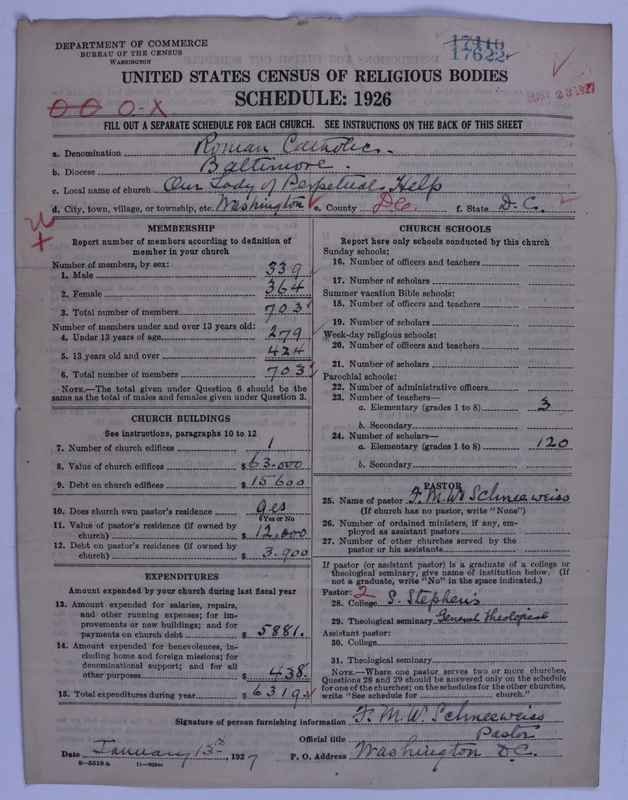 DEPARTMENT OF COMMERCE
BUREAU OF THE CENSUS
WASHINGTON
17410
17622
UNITED STATES CENSUS OF RELIGIOUS BODIES
SCHEDULE: 1926
O O O-X
FILL OUT A SEPARATE SCHEDULE FOR EACH CHURCH. SEE INSTRUCTIONS ON THE BACK OF THIS SHEET
a. Denomination Roman Catholic
b. Diocese Baltimore.
c. Local name of church Our Lady of Perpetual Help
d. City, town, village, or township, etc. Washington e. County D.C. f. State D.C.
MEMBERSHIP
Report number of members according to definition of member in your church
Number of members, by sex:
1. Male 339
2. Female 364
3. Total number of members 703
Number of members under and over 13 years old:
4. Under 13 years of age 279
5. 13 years old and over 424
6. Total number of members 703
NOTE.—The total given under Question 6 should be the same as the total of males and females given under Question 3.
CHURCH BUILDINGS
See instructions, paragraphs 10 to 12
7. Number of church edifices 1
8. Value of church edifices $63.000
9. Debt on church edifices $15600
10. Does church own pastor's residence yes
(Yes or No)
11. Value of pastor's residence (if owned by church) $12,000
12. Debt on pastor's residence (if owned by church) $3.900
EXPENDITURES
Amount expended by your church during last fiscal year
13. Amount expended for salaries, repairs, and other running expenses; for improvements or new buildings; and for payments on church debt $5881.
14. Amount expended for benevolences, including home and foreign missions; for denominational support; and for all other purposes $438.
15. Total expenditures during year $6319.
CHURCH SCHOOLS
Report here only schools conducted by this church
Sunday schools:
16. Number of officers and teachers
17. Number of scholars
Summer vacation Bible schools:
18. Number of officers and teachers
19. Number of scholars
Week-day religious schools:
20. Number of officers and teachers
21. Number of scholars
Parochial schools:
22. Number of administrative officers
23. Number of teachers—
a. Elementary (grades 1 to 8) 3
b. Secondary
24. Number of scholars—
a. Elementary (grades 1 to 8) 120
b. Secondary
PASTOR
25. Name of pastor F. M. W. Schneeweiss
(If church has no pastor, write "None")
26. Number of ordained ministers, if any, employed as assistant pastors
27. Number of other churches served by the pastor or his assistants
If pastor (or assistant pastor) is a graduate of a college or theological seminary, give name of institution below. (If not a graduate, write "No" in the space indicated.)
Pastor: 2
28. College S. Stephen's
29. Theological seminary General Theological
Assistant pastor:
30. College
31. Theological seminary
NOTE.—Where one pastor serves two or more churches, Questions 28 and 29 should be answered only on the schedule for one of the churches; on the schedules for the other churches, write "See schedule for church."
Signature of person furnishing information F. M. W. Schneeweiss
Official title Pastor
Date January 13th, 1927 P. O. Address Washington D.C.
8—5518a